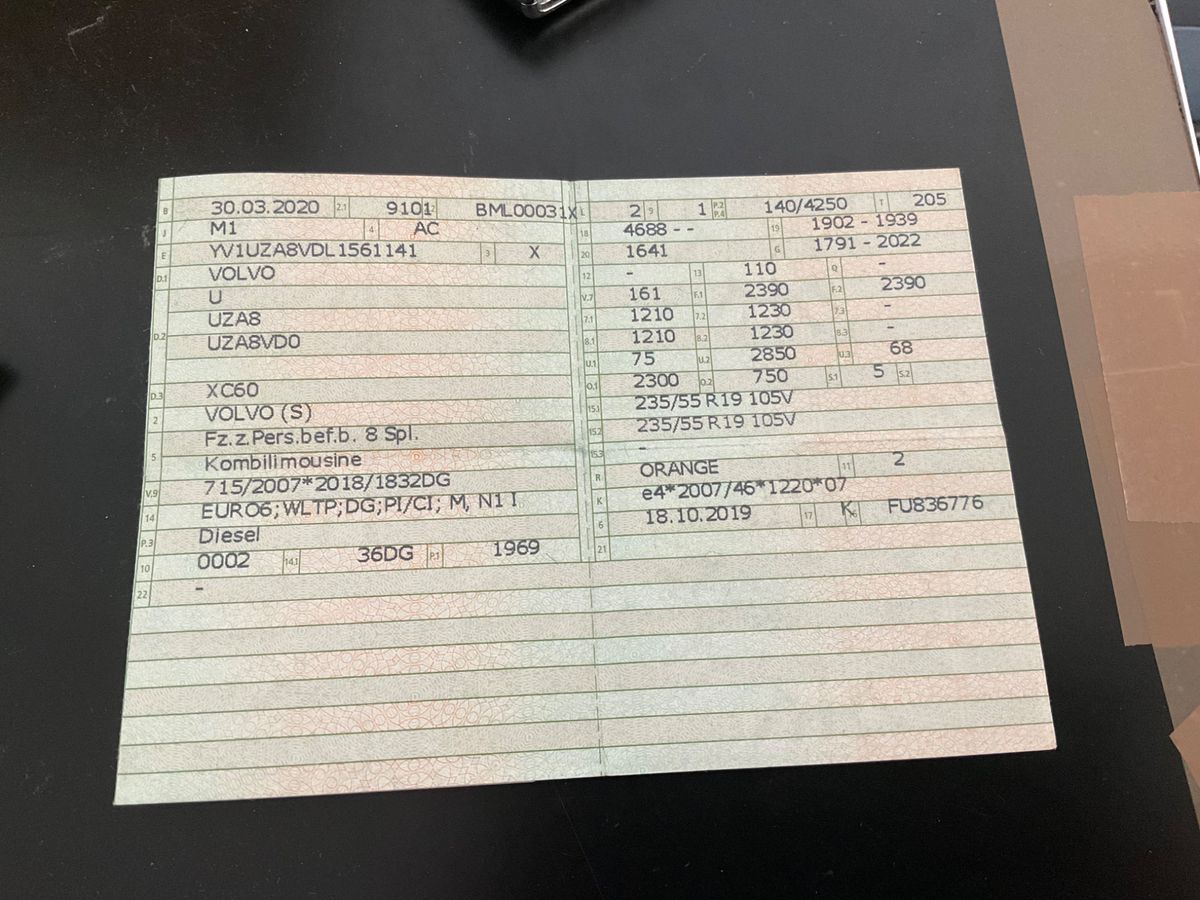 B 30.03.2020 2.1 9101 2.2 BML00031X
J M1 4 AC
E YV1UZA8VDL1561141 3 X
D.1 VOLVO
U
D.2 UZA8
UZA8VD0
D.3 XC60
2 VOLVO (S)
Fz.z.Pers.bef.b. 8 Spl.
5 Kombilimousine
V.9 715/2007*2018/1832DG
14 EURO6;WLTP;DG;PI/CI; M, N1 I
P.3 Diesel
10 0002 14.1 36DG P.1 1969
22 -
L 2 9 1 P.2 P.4 140/4250 T 205
18 4688 - - 19 1902 - 1939
20 1641 G 1791 - 2022
12 - 13 110 Q -
V.7 161 F.1 2390 F.2 2390
7.1 1210 7.2 1230 7.3 -
8.1 1210 8.2 1230 8.3 -
U.1 75 U.2 2850 U.3 68
O.1 2300 O.2 750 S.1 5 S.2
15.1 235/55 R19 105V
15.2 235/55 R19 105V
15.3 -
R ORANGE 11 2
K e4*2007/46*1220*07
6 18.10.2019 17 K 16 FU836776
21